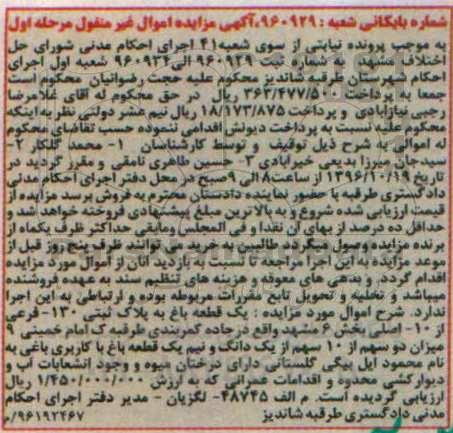 شماره بایگانی شعبه: ۹۶۰۹۲۹،آگهی مزایده اموال غیر منقول مرحله اول
به موجب پرونده نیابتی از سوی شعبه۴۱ اجرای احکام مدنی شورای حل
اختلاف مشهد به شماره ثبت ۹۶۰۹۲۹ الی۹۶۰۹۳۴ شعبه اول اجرای
احکام شهرستان طرقبه شاندیز محکوم علیه حجت رضوانیان محکوم است
جمعا به پرداخت ۳۶۳/۴۷۷/۵۰۰ ریال در حق محکوم له آقای غلامرضا
رجبی نیازآبادی و پرداخت ۱۸/۱۷۳/۸۷۵ ریال نیم عشر دولتی نظر به اینکه
محکوم علیه نسبت به پرداخت دیونش اقدامی ننموده حسب تقاضای محکوم
له اموالی به شرح ذیل توقیف و توسط کارشناسان ۱- محمد گلکار ۲-
سیدجان میرزا بدیعی خیرآبادی ۳- حسین طاهری نامقی و مقرر گردید در
تاریخ ۱۳۹۶/۱۰/۱۹ از ساعت۸ الی ۹صبح در محل دفتر اجرای احکام مدنی
دادگستری طرقبه با حضور نماینده دادستان محترم به فروش برسد مزایده از
قیمت ارزیابی شده شروع و به بالاترین مبلغ پیشنهادی فروخته خواهد شد و
حداقل ده درصد از بهای آن نقدا و فی المجلس ومابقی حداکثر ظرف یکماه از
برنده مزایده وصول میگردد طالبین به خرید می توانند ظرف پنج روز قبل از
موعد مزایده به این اجرا مراجعه تا نسبت به بازدید آنان از اموال مورد مزایده
اقدام گردد. و بدهی های معوقه و هزینه های تنظیم سند به عهده فروشنده
میباشد و تخلیه و تحویل تابع مقررات مربوطه بوده و ارتباطی به این اجرا
ندارد. شرح اموال مورد مزایده : یک قطعه باغ به پلاک ثبتی ۱۳۰- فرعی
از ۱۰- اصلی بخش ۶ مشهد واقع در جاده کمربندی طرقبه ک امام خمینی ۹
میزان دو سهم از ۱۰ سهم از یک دانگ و نیم یک قطعه باغ با کاربری باغی به
نام محمود ایل بیگی گلستانی دارای درختان میوه و وجود انشعابات آب و
دیوارکشی محدوه و اقدامات عمرانی که به ارزش ۱/۴۵۰/۰۰۰/۰۰۰ ریال
ارزیابی گردیده است. م الف ۴۸۷۴۵- لگزیان - مدیر دفتر اجرای احکام
مدنی دادگستری طرقبه شاندیز ۹۶۱۹۲۴۶۷/م